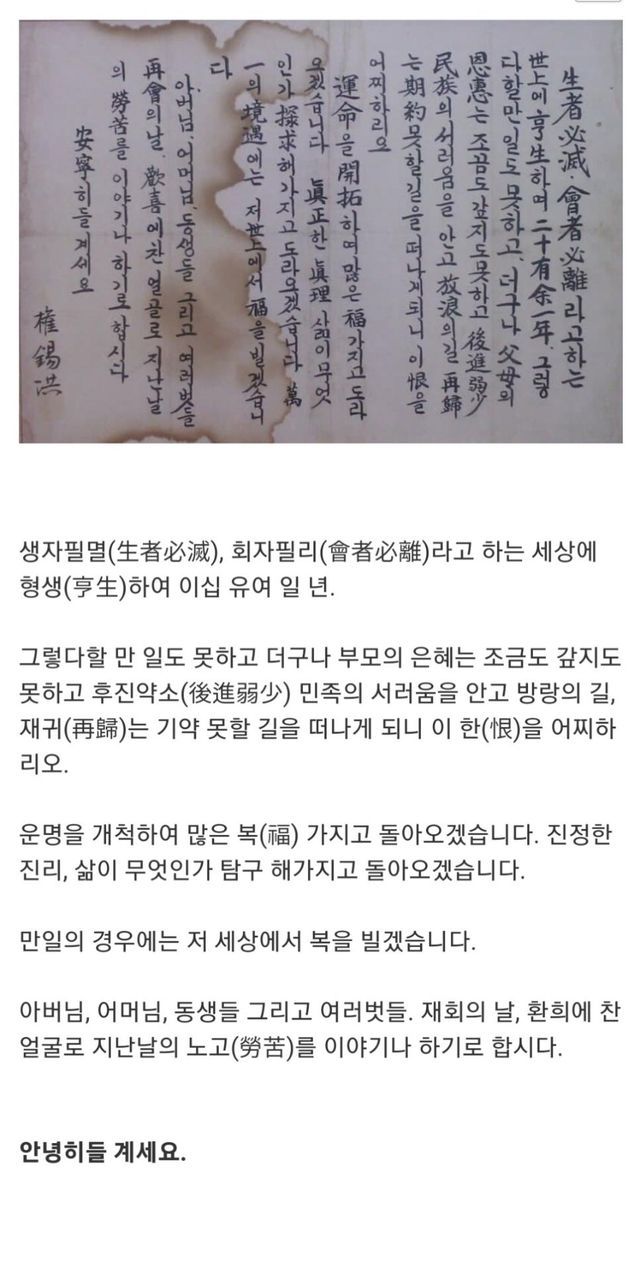 生者必滅 會者必離라고하는
世上에 亨生하며 二十有余一年. 그렇
다할만일도 못하고, 더구나 父母의
恩惠는 조끔도 갚지도못하고 後進弱少
民族의 서러움을 안고 放浪의길 再歸
는 期約못할길을 떠나게되니 이 恨을
어찌하리요
運命을 開拓하며 많은 福가지고 도라
오겠습니다 眞正한 眞理 삶이무엇
인가 探求해가지고 도라오겠습니다 萬
一의 境遇에는 저世上에서 福을 빌겠습니
다
아버님, 어머님, 동생들 그리고 여러벗들
再會의날, 歡喜에찬 얼골로 지난날
의 勞苦를 이야기나 하기로 합시다
安寧히들 계세요
權錫洪
생자필멸(生者必滅), 회자필리(會者必離)라고 하는 세상에
형생(亨生)하여 이십 유여 일 년.
그렇다할 만 일도 못하고 더구나 부모의 은혜는 조금도 갚지도
못하고 후진약소(後進弱少) 민족의 서러움을 안고 방랑의 길,
재귀(再歸)는 기약 못할 길을 떠나게 되니 이 한(恨)을 어찌하
리오.
운명을 개척하여 많은 복(福) 가지고 돌아오겠습니다. 진정한
진리, 삶이 무엇인가 탐구 해가지고 돌아오겠습니다.
만일의 경우에는 저 세상에서 복을 빌겠습니다.
아버님, 어머님, 동생들 그리고 여러벗들. 재회의 날, 환희에 찬
얼굴로 지난날의 노고(勞苦)를 이야기나 하기로 합시다.
안녕히들 계세요.